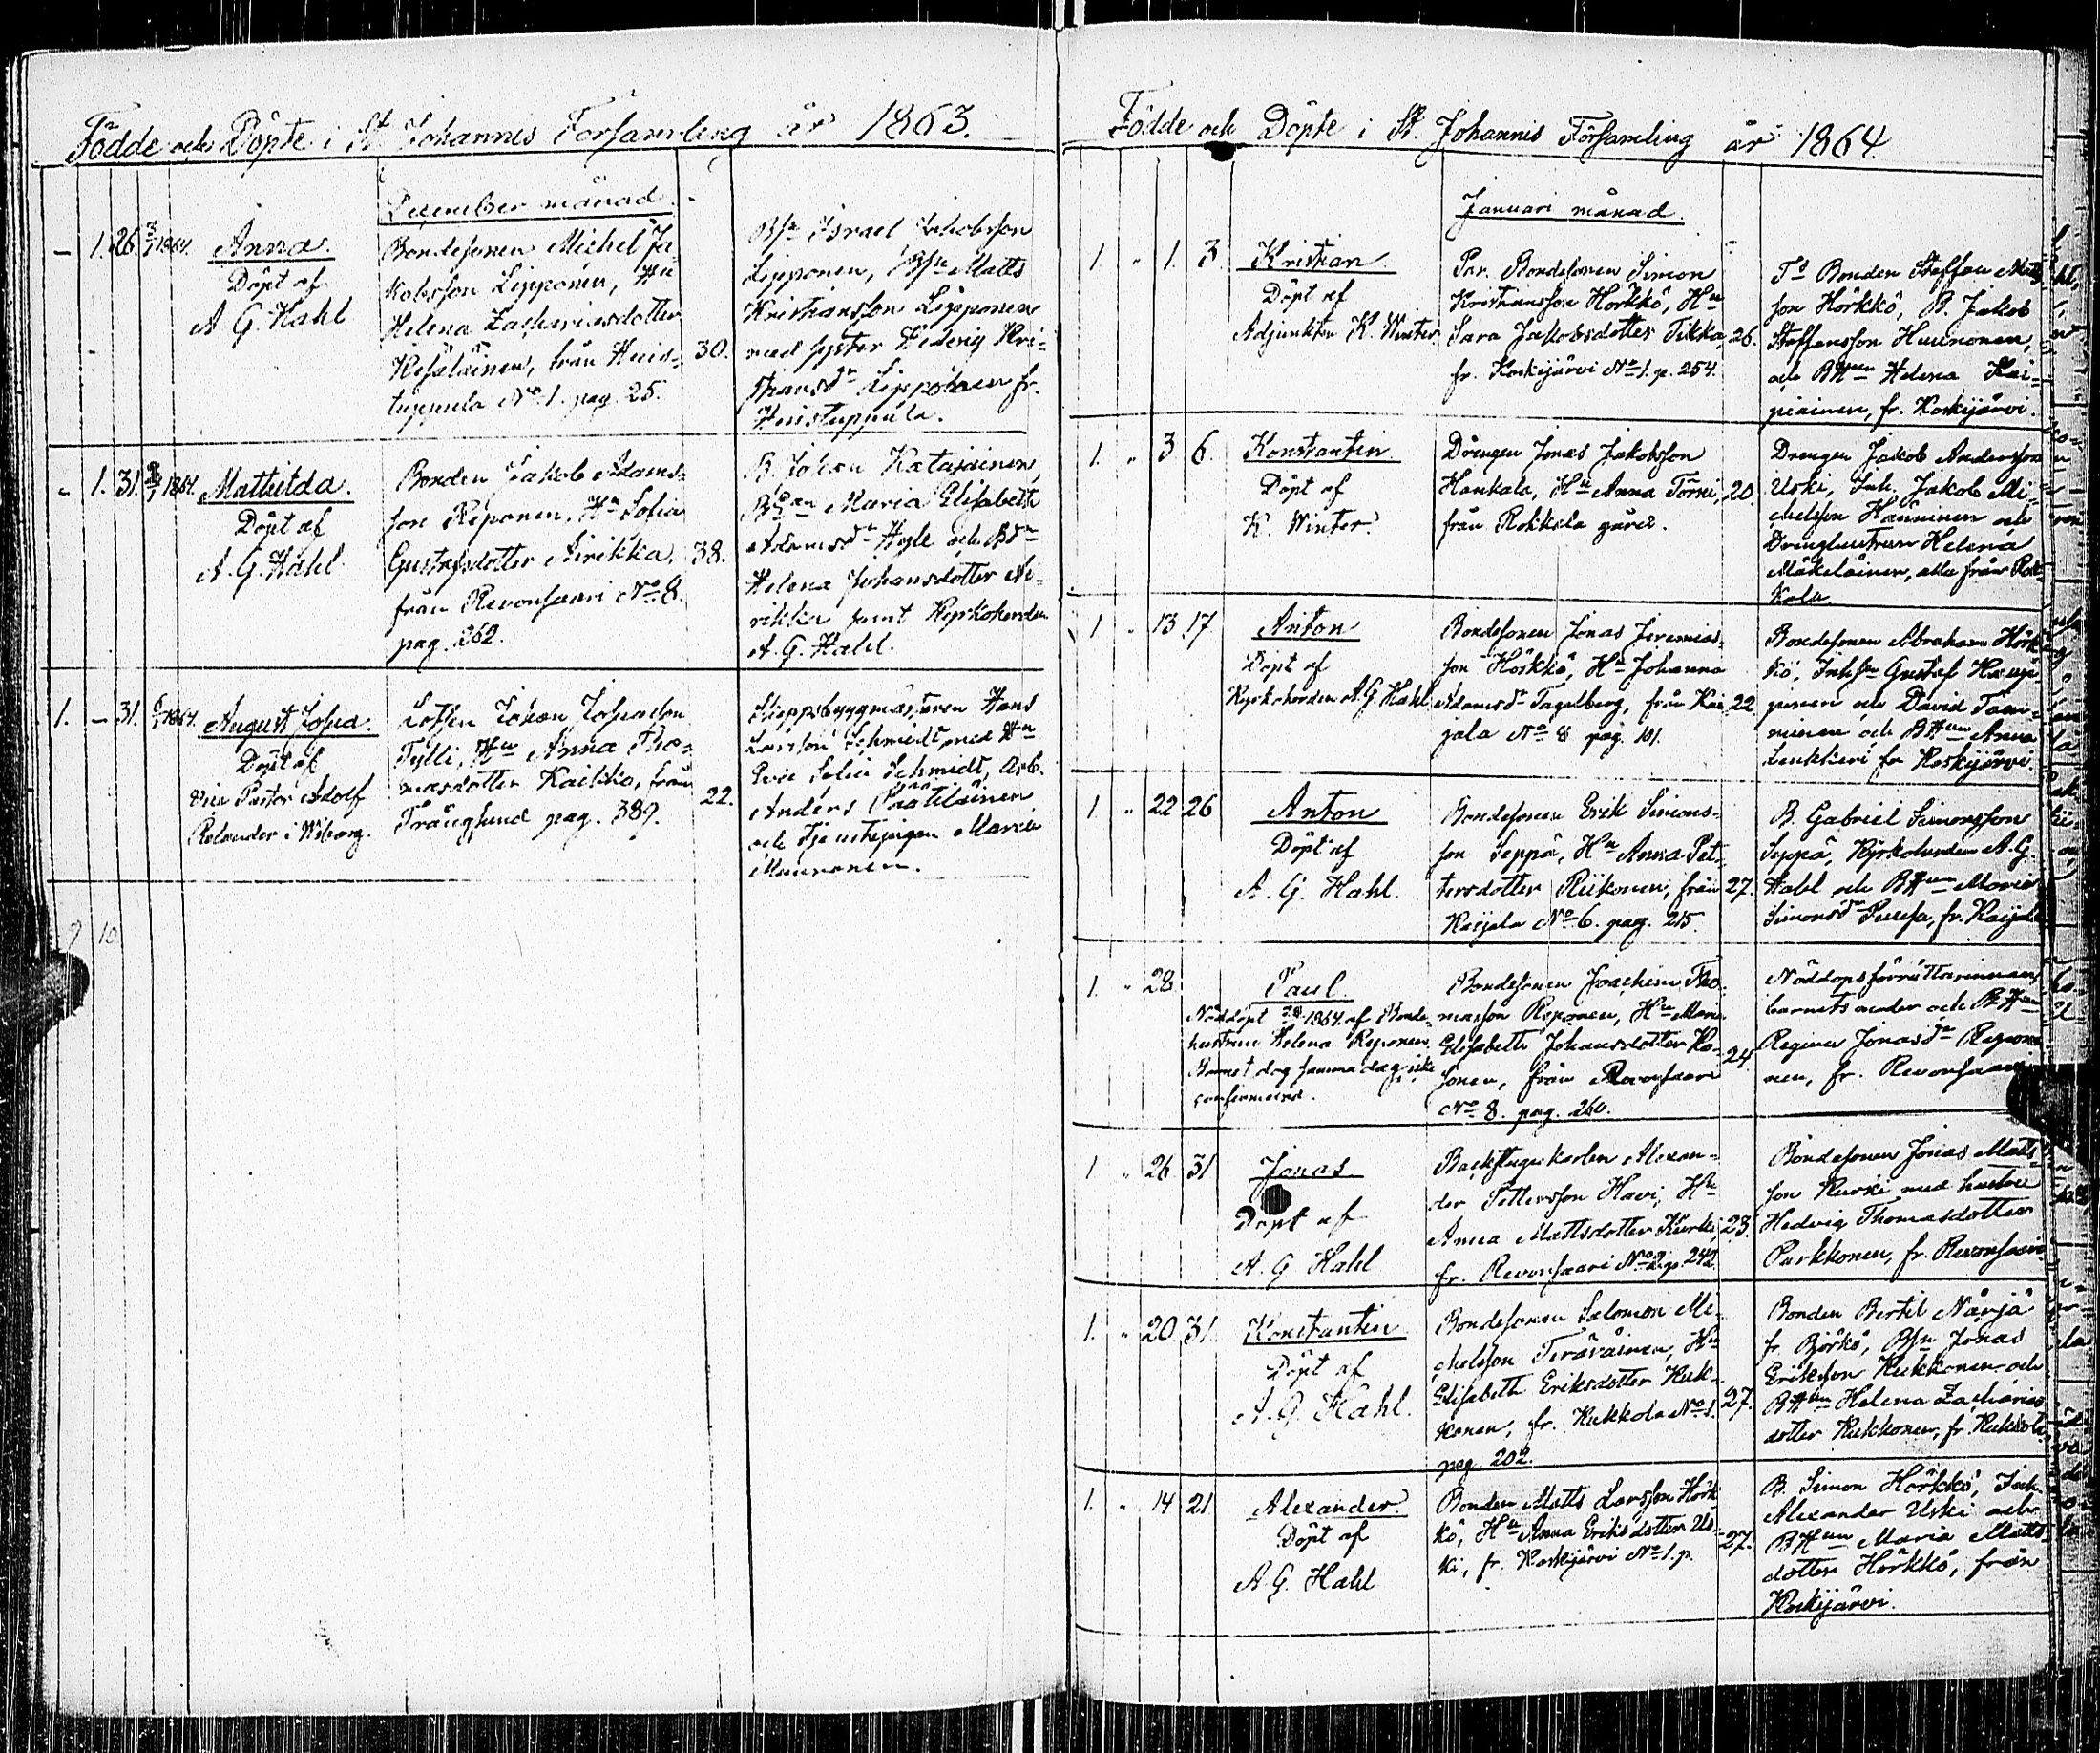 Födde och Döpte i St Johannis Församling år 1863.
December månad.
— 1. 26. 3/1 1864. Anna.
Döpt af
A G. Hahl
Bondesonen Michel Ja-
kobsson Lipponen, Hu
Helena Zachariasdotter
från Huis-
tuppula No 1. pag. 25.
30.
Bsn Israel Jakobsson
Lipponen, Bsn Matts
Kristiansson Lipponen
med syster Hedvig Kri-
stiansdr Lipponen fr.
Huistuppula.
- 1. 31. 1864. Mathilda.
Döpt af
A. G. Hahl.
Bonden Jakob Adams-
son Reponen, Hu Sofia
Gustafsdotter Airikka,
från Revonsaari No 8.
pag. 262.
38.
B. Johan Katajainen,
Maria Elisabeth
Adamsdr och
Helena Johansdotter Ai-
rikka samt Kyrkoherden
A. G. Hahl.
1. — 31. 1864. August Josua.
Döpt af
Vice Pastor Adolf
Relander i Wiborg.
Johan Josuason
Tylli, Hu Anna Tho-
masdotter Kaikko, från
Trångsund pag. 389.
22.
Skeppsbyggmästaren Hans
Larsson Schmidt med Hu
Eva Sofia Schmidt, Arb.
Anders Päätiläinen
och Tjenstepigan Maria
Mauronen.
Födde och Döpte i St. Johannis Församling år 1864.
Januari månad.
1 " 1. 3. Kristian
Döpt af
Adjunkten K. Winter
Bondesonen Simon
Kristiansson Hörkkö, Hu
Sara Jakobsdotter Tikka
fr. Koskijärvi No 1. p. 254.
26.
Bonden Staffan Matts-
son Hörkkö, B. Jakob
Staffansson Huunonen,
och BHun Helena Kai-
piainen, fr. Koskijärvi.
1. " 3 6. Konstantin
Döpt af
K. Winter.
Drengen Jonas Jakobsson
Haukala, Hu Anna Törni,
från Rokkala gård.
20.
Drengen Jakob Andersson
Uski, Inh. Jakob Mi-
chelsson Hänninen och
Drenghustrun Helena
Mäkeläinen, alla från Rok-
kala.
1 " 13 17 Anton
Döpt af
Kyrkoherden A. G. Hahl
Bondesonen Jonas Jeremias-
son Hörkkö, Hu Johanna
Adamsdr Fagelberg, från Kai-
jala No 8 pag. 101.
22
Bondesonen Abraham Hörk-
kö, Gustaf
och David Tam-
minen och BHun Anna
fr Koskijärvi.
1 " 22 26 Anton
Döpt af
A. G. Hahl.
Bondesonen Erik Simons-
son Seppä, Hu Anna Pet-
tersdotter Riikonen, från
Kaijala No 6. pag. 215.
27.
B. Gabriel Simonsson
Seppä, Kyrkoherden A. G.
Hahl och BHun Maria
Simonsdr fr. Kaijala
1. " 28. Paul.
Nöddöpt 28/1 1864. af Bonde-
hustrun Helena Reponen.
Barnet dog samma dag, icke
confirmerad.
Bondesonen Joachim Tho-
masson Reponen, Hu Maria
Elisabeth Johansdotter Ko-
sonen, från Revonsaari
No 8. pag. 260.
24.
Nöddopsförrättarinnan,
barnets moder och BHun
Regina Jonasdr Repo-
nen, fr. Revonsaari
1 " 26 31 Jonas
Döpt af
A. G Hahl
Backstugukarlen Alexan-
der Pettersson Havi, Hu
Anna Mattsdotter Kurki,
fr. Revonsaari No 2. p. 242.
23.
Bondesonen Jonas Matts-
son Kurki med hustru
Hedvig Thomasdotter
Parkkonen, fr. Revonsaari
1. " 20. 31. Konstantin
Döpt af
A. G. Hahl.
Bondesonen Salomon Mi-
chelsson Teräväinen, Hu
Elisabeth Eriksdotter Kuk-
konen, fr. Kukkola No 1.
pag. 202.
27.
Bonden Bertil
fr Björkö, Bsn Jonas
Eriksson Kukkonen och
BHun Helena Zacharias
dotter Kukkonen, fr Kukkola
1. " 14 21 Alexander.
Döpt af
A G. Hahl
Bonden Matts Larsson Hörk-
kö, Hu Anna Eriksdotter Us-
ki, fr. Koskijärvi No 1. p.
27.
B. Simon Hörkkö, Inh.
Alexander Uski och
BHun Maria Matts-
dotter Hörkkö, från
Koskijärvi.